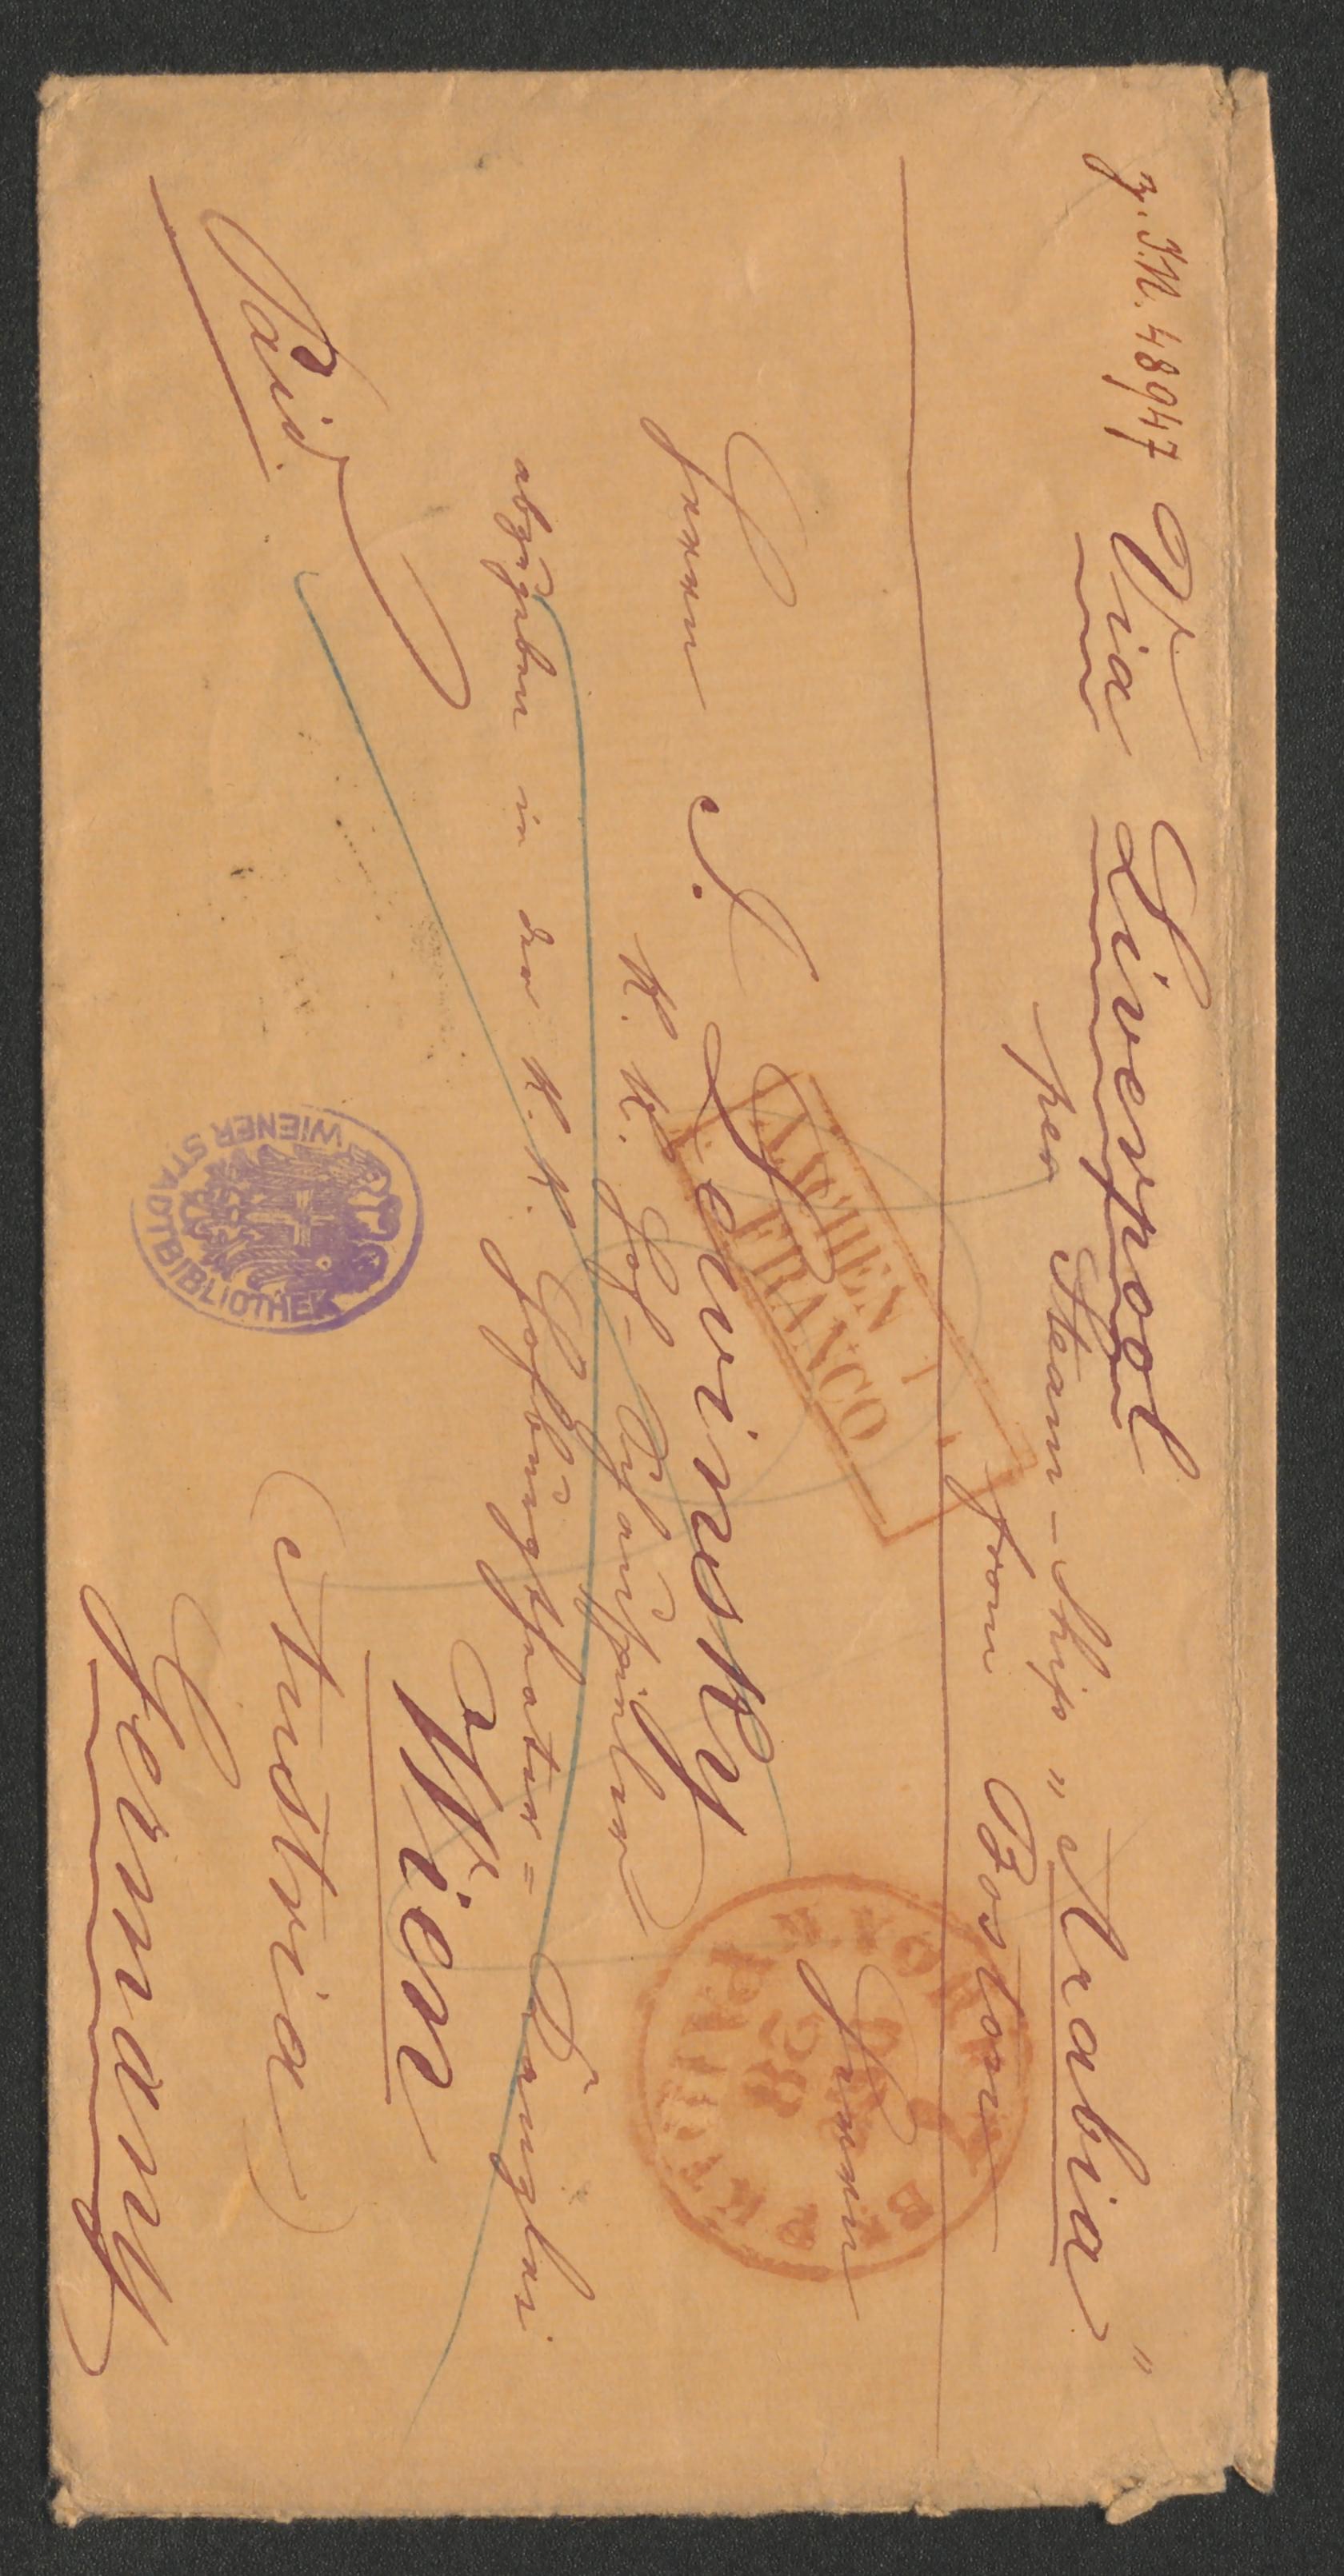 z. I.N. 48947
Via Liverpool
per Steam-Ship "Arabia"
from Boston
Herrn
Herrn J. Lewinsky
K. K. Hof-Schauspieler
abzugeben in der K. K. Hofburgtheater=Kanzlei
Wien
(Austria)
Germany
Paid
AACHEN
FRANCO
N. YORK BR PKT
PAID
28
WIENER STADTBIBLIOTHEK